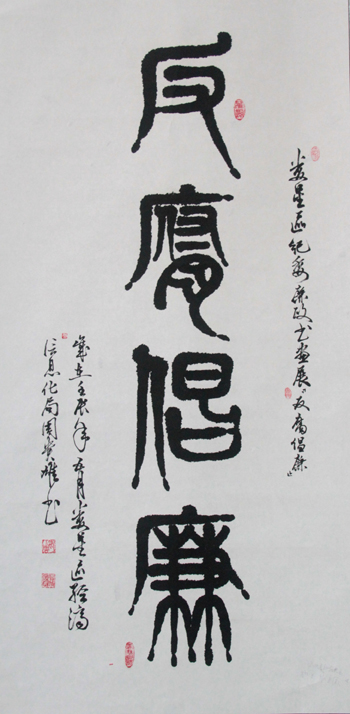 娄星区纪委廉政书画展"反腐倡廉"
反腐倡廉
岁在壬辰年五月娄星区经济
信息化局周荣雄书